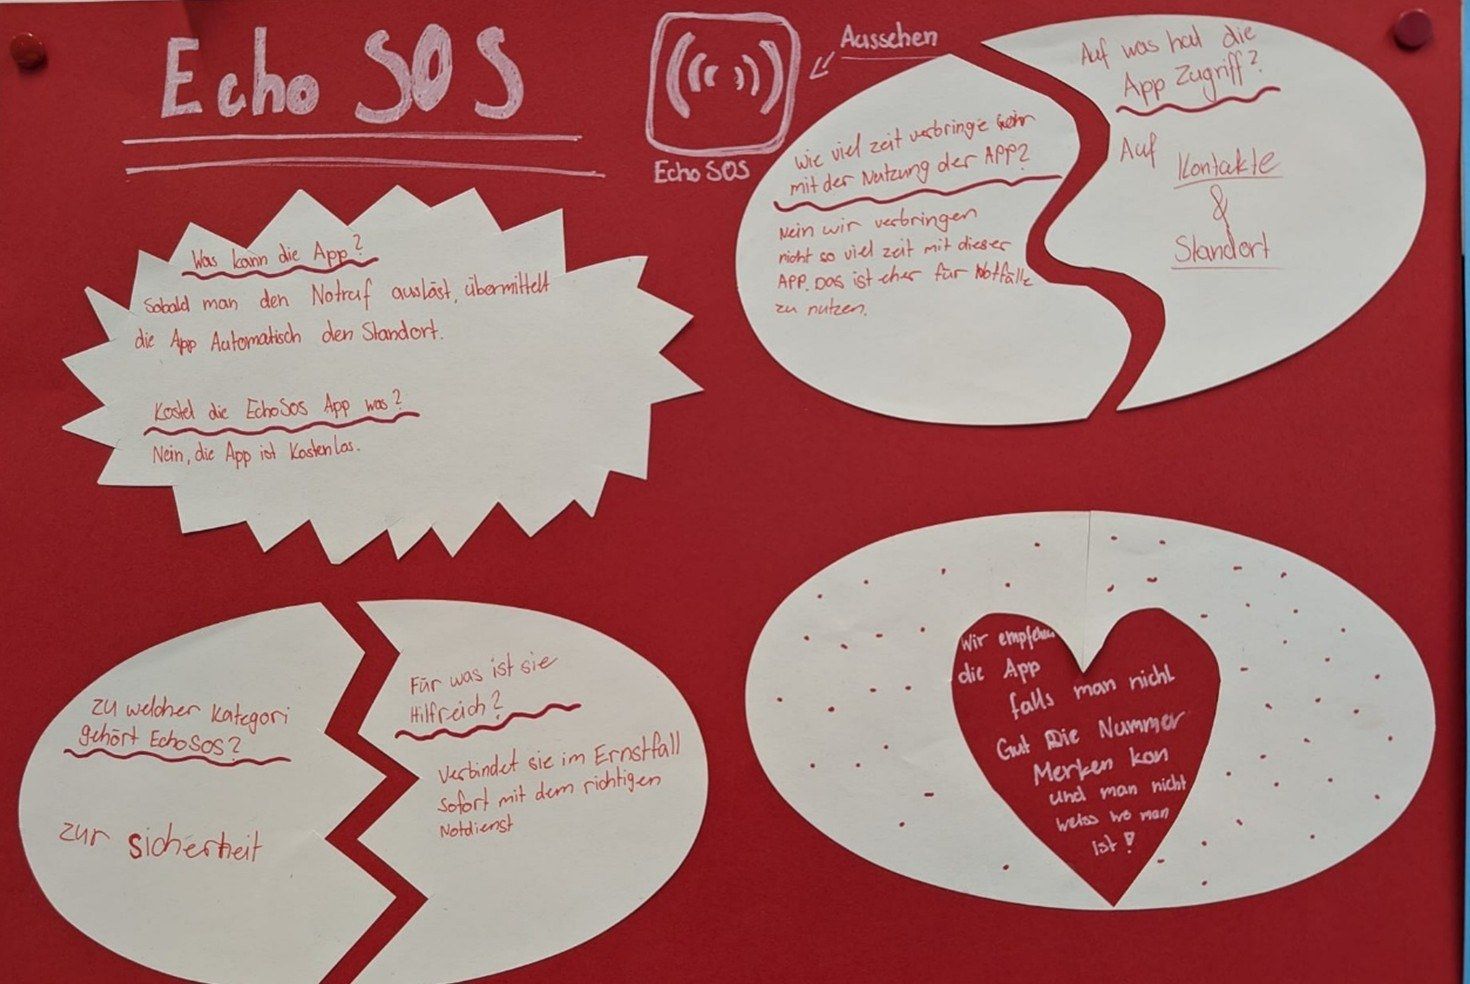 Echo SOS
Aussehen
Echo SOS
Was kann die App?
Sobald man den Notruf auslöst, übermittelt
die App Automatisch den Standort.
Kostet die EchoSOS App was?
Nein, die App ist Kostenlos.
Wie viel zeit verbringe
mit der Nutzung der APP?
Nein wir verbringen
nicht so viel zeit mit dieser
APP. Das ist eher für Notfälle
zu nutzen.
Auf was hat die
App Zugriff?
Auf
Kontakte
&
Standort
zu welcher Kategori
gehört EchoSOS?
zur sicherheit
Für was ist sie
Hilfreich?
Verbindet sie im Ernstfall
sofort mit dem richtigen
Notdienst
Wir empfehlen
die App
falls man nicht
Gut Die Nummer
Merken kan
und man nicht
weiss wo man
ist!